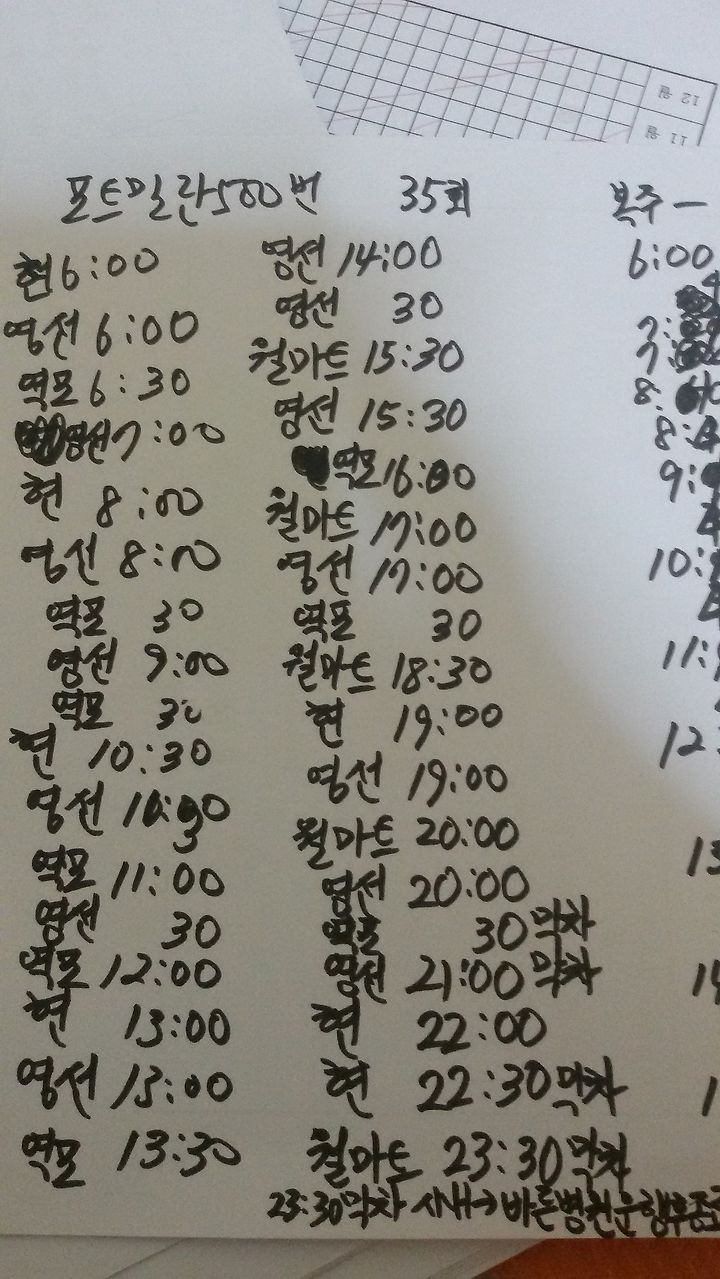 포트밀란500번 35회
현 6:00
영선 6:00
역포 6:30
영선 7:00
현 8:00
영선 8:00
역포 30
영선 9:00
역포 30
현 10:30
영선 10:30
역포 11:00
영선 30
역포 12:00
현 13:00
영선 13:00
역포 13:30
영선 14:00
영선 30
월마트 15:30
영선 15:30
역포 16:00
월마트 17:00
영선 17:00
역포 30
월마트 18:30
현 19:00
영선 19:00
월마트 20:00
영선 20:00
역포 30 막차
영선 21:00 막차
현 22:00
현 22:30 막차
월마트 23:30 막차
23:30막차 시내→바른병원운행후종
복주
6:00
12월
11월